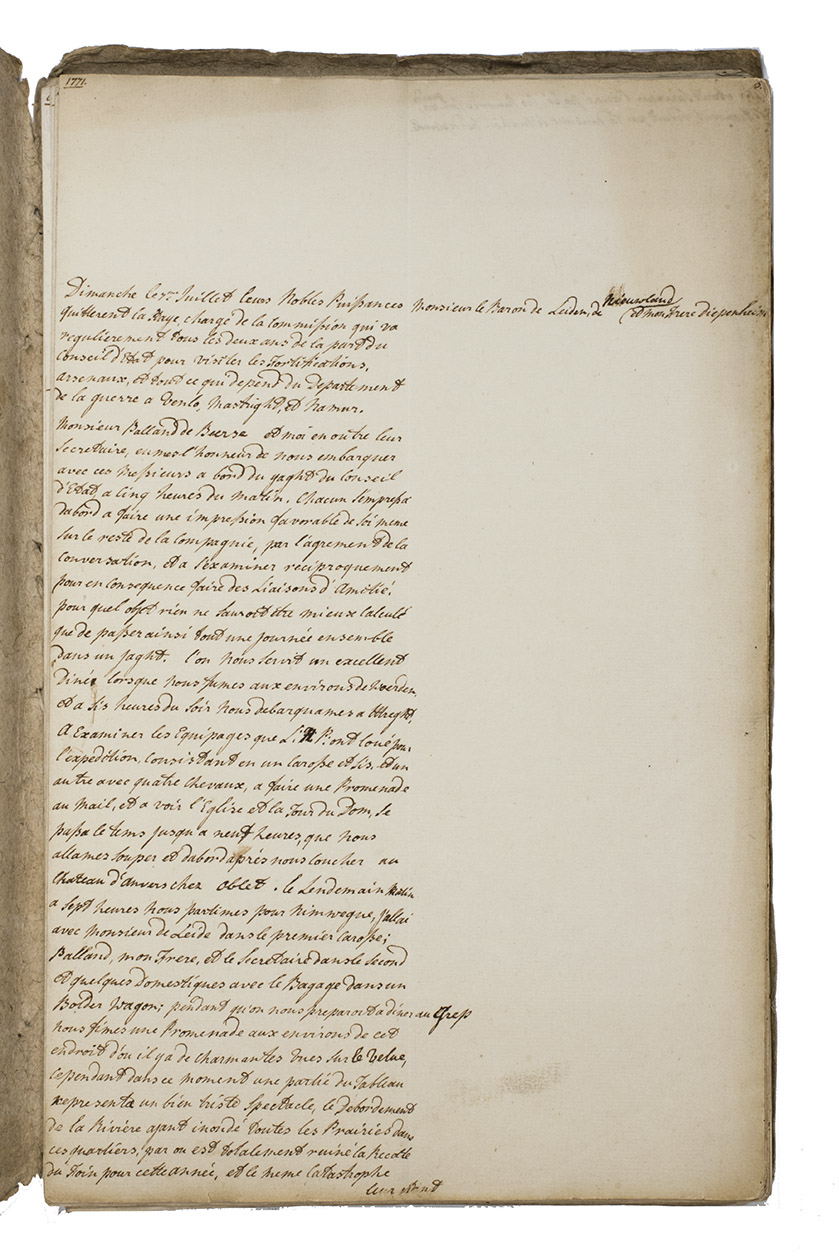 1771.
Dimanche le 7me Juillet leurs Nobles Puissances Monsieur le Baron de Leiden, de Nieuwland
et mon Frere diepenheim
quitterent la Haye, chargé de la Commission qui va
regulierement tous les deux ans de la part du
Conseil d'Etat pour visiter les Fortifications,
arsenaux, et tout ce qui depend du Departement
de la guerre a Venlo, Mastright, et Namur.
Monsieur Balland de Beerse et moi en outre leur
Secretaire, eumes l'honneur de nous embarquer
avec ces Messieurs a bord du yaght du Conseil
d'Etat, a Cinq heures du Matin. Chacun s'empressa
dabord a faire une impression favorable de Soi meme
sur le reste de la Compagnie, par l'agrement de la
Conversation, et a s'examiner reciproquement
pour en consequence faire des Liaisons d'Amitié;
pour quel objet rien ne sauroit étre mieux Calculé
que de passer ainsi tout une journée ensemble
dans un jaght. l'on nous servit un excellent
Diné lorsque nous fumes aux environs de Woerden,
et a Six heures du Soir nous debarquames a Uttreght.
A Examiner les Equipages que L: N: P: ont loué pour
l'expedition, Consistant en un Carosse et Six, et un
autre avec quatre Chevaux, a faire une Promenade
au Mail, et a voir l'Eglise et la Tour du Dom, se
passa le tems jusqu'a neuf heures, que nous
allames souper et dabord aprés nous coucher au
Chateau d'Anvers chez Oblet. le Lendemain Matin
a Sept heures nous partimes pour Nimwegue, j'allai
avec Monsieur de Leide dans le premier Carosse;
Balland, mon Frere, et le Secretaire dans le Second
et quelques Domestiques avec le Bagage dans un
Bolder Wagon; pendant qu'on nous preparoit a diner au Grep
nous fimes une Promenade aux environs de cet
endroit d'ou il ya de Charmantes Vues sur le Velue,
cependant dans ce moment une partie du Tableau
representa un bien triste Spectacle, le Debordement
de la Riviére ajant inondé toutes les Prairies dans
ces quartiers, par ou est totalement ruiné la Recolte
du Foin pour cette année, et le meme Catastrophe
leur